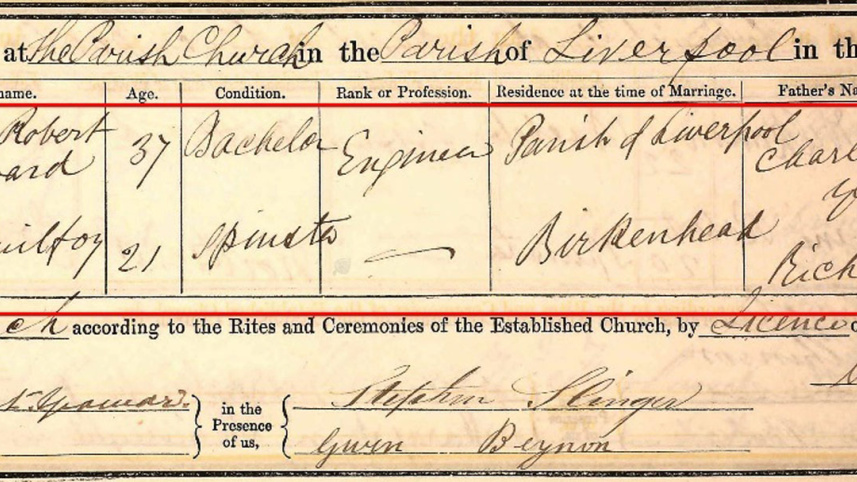 at the Parish Church in the Parish of Liverpool in th
name. Age. Condition. Rank or Profession. Residence at the time of Marriage. Father's Na
Robert 37 Bachelor Engineer Parish of Liverpool Charl
ard
21 Spinster — Birkenhead Rich
ch according to the Rites and Ceremonies of the Established Church, by Licence o
in the
Presence
of us,
Stephen Slinger
Gwen Beynon